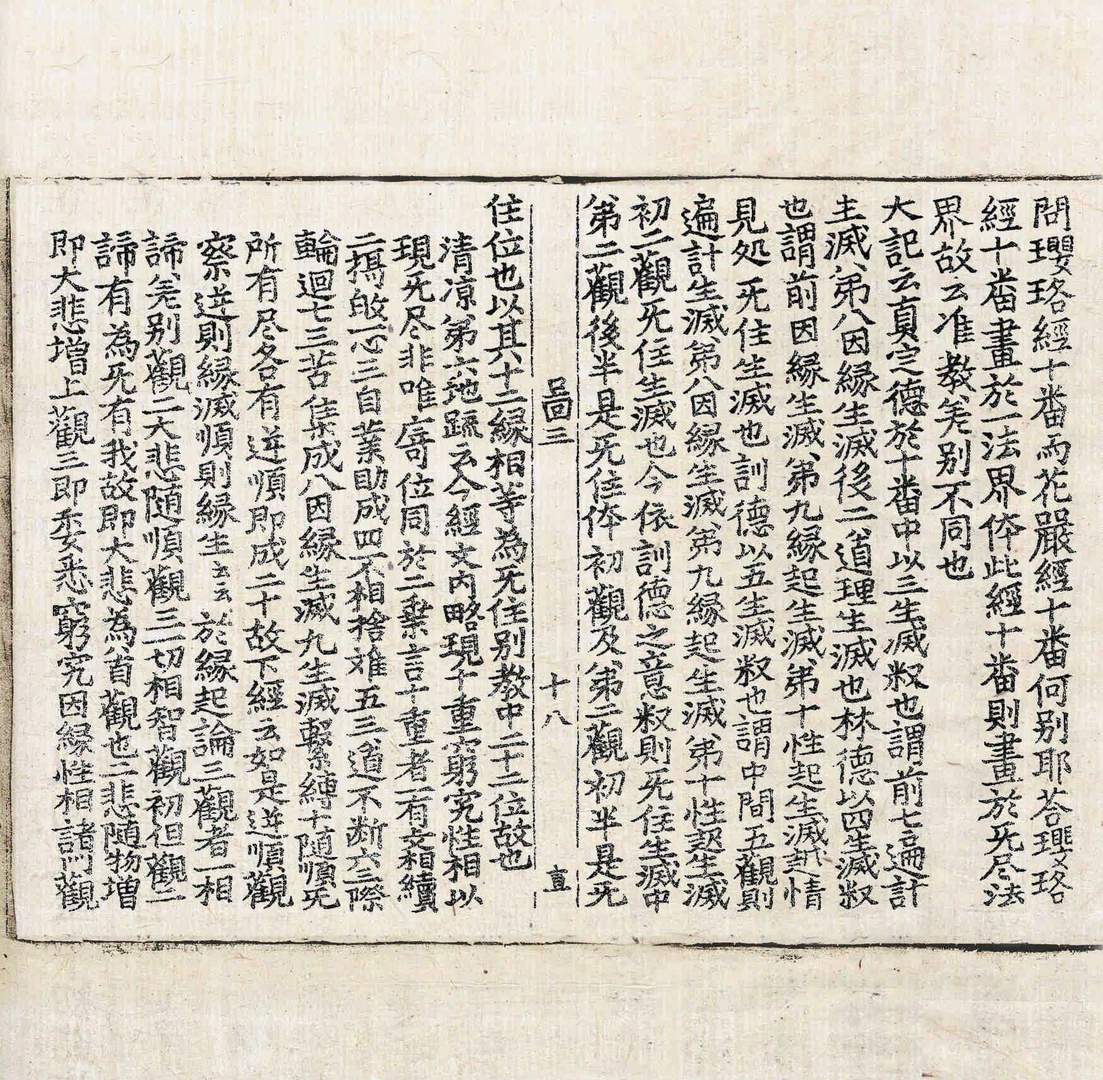 問瓔珞經十番而花嚴經十番何别耶荅瓔珞
經十番畫於一法界体此經十番則畫於无尽法
界故云准教差别不同也
大記云真定德於十番中以三生滅叙也謂前七遍計
生滅第八因縁生滅後二道理生滅也林德以四生滅叙
也謂前因縁生滅第九縁起生滅第十性起生滅越情
見処无住生滅也訓德以五生滅叙也謂中間五觀則
遍計生滅第八因縁生滅第九縁起生滅第十性起生滅
初二觀无住生滅也今依訓德之意叙則无住生滅中
第二觀後半是无住体初觀及第二觀初半是无
回三 十八 直
住位也以其十二縁相等為无住别教中二十二位故也
清凉第六地䟽云今經文内略現十重窮究性相以
現无尽非唯寄位同於二乗言十重者一有支相續
二攝帰一心三自業助成四不相捨離五三道不断六三際
輪迴七三苦集成八因縁生滅九生滅繫縛十随順无
所有尽各有逆順即成二十故下經云如是逆順觀
察逆則縁滅順則縁生云云 於縁起論三觀者一相
諦差别觀二大悲随順觀三一切相智觀初但觀二
諦有為无有我故即大悲為首觀也二悲随物增
即大悲增上觀三即委悉窮究因縁性相諸門觀